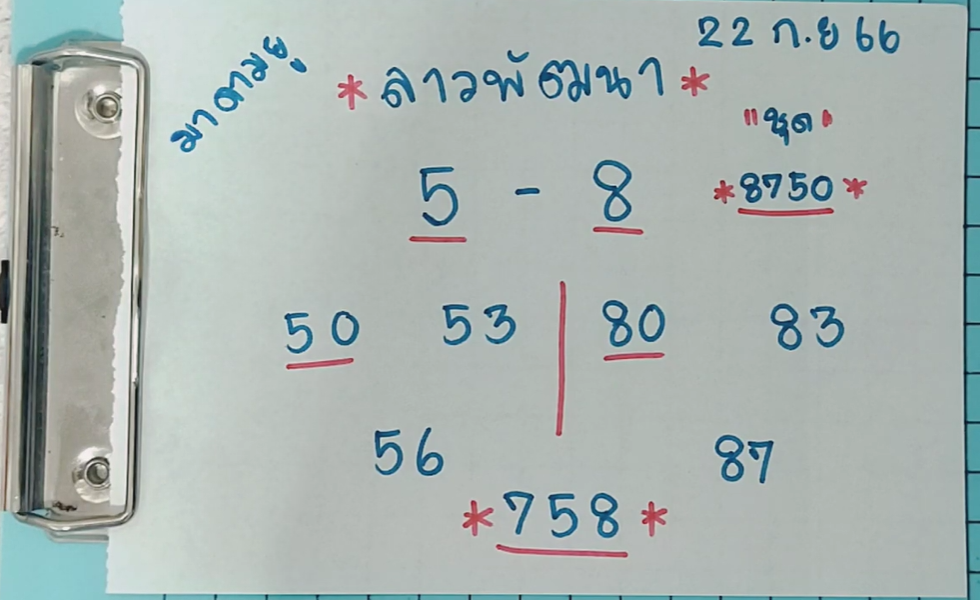 22 ก.ย 66
มาดามยู
*ลาวพัฒนา*
"ชุด"
5 - 8
*8750*
50 53 | 80 83
56 87
*758*